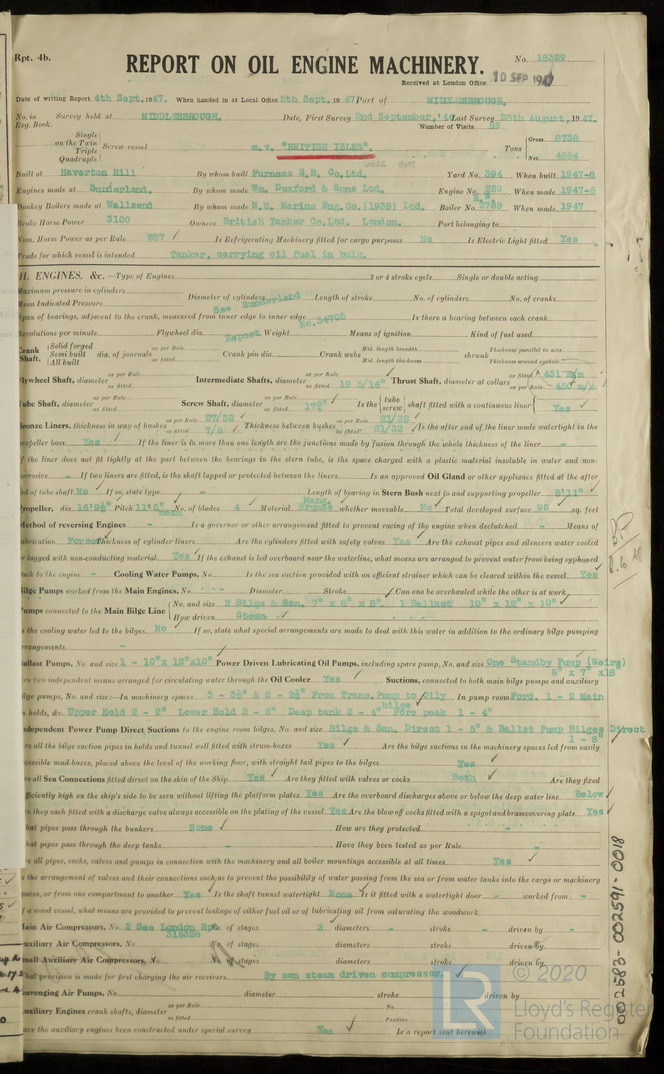 Rpt. 4b.
REPORT ON OIL ENGINE MACHINERY.
No. 18329
Received at London Office 10 SEP 1947
Date of writing Report 4th Sept. 1947. When handed in at Local Office 5th Sept. 1947 Port of MIDDLESBROUGH.
No. in Reg. Book. Survey held at MIDDLESBROUGH, Date, First Survey 2nd September, '46 Last Survey 28th August, 1947.
Number of Visits
Single on the Twin Triple Quadruple Screw vessel m.v. "BRITISH ISLES". Tons Gross 8738 Net 4884
Built at Haverton Hill By whom built Furness S.B. Co.Ltd. Yard No. 394 When built 1947-8
Engines made at Sunderland. By whom made Wm. Doxford & Sons Ltd. Engine No. 259 When made 1947-8
Donkey Boilers made at Wallsend By whom made N.E. Marine Eng.Co.(1938) Ltd. Boiler No. 2789 When made 1947
Brake Horse Power 3100 Owners British Tanker Co.Ltd. London. Port belonging to
Nom. Horse Power as per Rule 687 Is Refrigerating Machinery fitted for cargo purposes No Is Electric Light fitted Yes
Trade for which vessel is intended Tanker, carrying oil fuel in bulk.
II. ENGINES, &c.—Type of Engines 2 or 4 stroke cycle Single or double acting
Maximum pressure in cylinders Diameter of cylinders Length of stroke No. of cylinders No. of cranks
Mean Indicated Pressure See Sunderland
Span of bearings, adjacent to the crank, measured from inner edge to inner edge Report No.34705 Is there a bearing between each crank
Revolutions per minute Flywheel dia. Weight Means of ignition Kind of fuel used
Crank Shaft, Solid forged Semi built All built dia. of journals as per Rule as fitted Crank pin dia. Crank webs Mid. length breadth Mid. length thickness shrunk Thickness parallel to axis Thickness around eyehole
Flywheel Shaft, diameter as per Rule as fitted Intermediate Shafts, diameter as per Rule as fitted 19 5/16" Thrust Shaft, diameter at collars as fitted 431 m/m as per Rule 450 m/m
Tube Shaft, diameter as per Rule as fitted Screw Shaft, diameter as per Rule as fitted 17½" Is the tube screw shaft fitted with a continuous liner Yes
Bronze Liners, thickness in way of bushes as per Rule 27/32 as fitted 7/8 Thickness between bushes as per Rule 21/32 as fitted 21/32 Is the after end of the liner made watertight in the
propeller boss Yes If the liner is in more than one length are the junctions made by fusion through the whole thickness of the liner -
If the liner does not fit tightly at the part between the bearings in the stern tube, is the space charged with a plastic material insoluble in water and non-
corrosive - If two liners are fitted, is the shaft lapped or protected between the liners Is an approved Oil Gland or other appliance fitted at the after
end of tube shaft No If so, state type - Length of bearing in Stern Bush next to and supporting propeller 5'11"
Propeller, dia. 16'9½" Pitch 11'5" mean No. of blades 4 Material Mang. Bronze whether moveable No Total developed surface 95 sq. feet
Method of reversing Engines - Is a governor or other arrangement fitted to prevent racing of the engine when declutched - Means of
lubrication Forced Thickness of cylinder liners Are the cylinders fitted with safety valves Yes Are the exhaust pipes and silencers water cooled
or lagged with non-conducting material Yes If the exhaust is led overboard near the waterline, what means are arranged to prevent water from being syphoned
back to the engine - Cooling Water Pumps, No. Is the sea suction provided with an efficient strainer which can be cleared within the vessel Yes
Bilge Pumps worked from the Main Engines, No. Diameter Stroke Can one be overhauled while the other is at work
Pumps connected to the Main Bilge Line No. and size 2 Bilge & San. 7" x 8" x 8" 1 Ballast 10" x 12" x 10"
How driven Steam
Is the cooling water led to the bilges No If so, state what special arrangements are made to deal with this water in addition to the ordinary bilge pumping
arrangements -
Ballast Pumps, No. and size 1 - 10"x 12"x10" Power Driven Lubricating Oil Pumps, including spare pump, No. and size One Standby Pump (Weirs) 8" x 7" x18
Are two independent means arranged for circulating water through the Oil Cooler Yes Suctions, connected to both main bilge pumps and auxiliary
bilge pumps, No. and size:—In machinery spaces 3 - 3½" & 2 - 2½" From Trans. Pump to Oily bilge In pump room Ford. 1 - 2 Main
In holds, &c. Upper Hold 2 - 2" Lower Hold 2 - 2" Deep tank 2 - 4" Fore peak 1 - 4"
Independent Power Pump Direct Suctions to the engine room bilges, No. and size Bilge & San. Direct 1 - 5" & Ballast Pump Bilges Direct 1 - 8"
Are all the bilge suction pipes in holds and tunnel well fitted with strum-boxes Yes Are the bilge suctions in the machinery spaces led from easily
accessible mud-boxes, placed above the level of the working floor, with straight tail pipes to the bilges Yes
Are all Sea Connections fitted direct on the skin of the Ship Yes Are they fitted with valves or cocks Both Are they fixed
sufficiently high on the ship's side to be seen without lifting the platform plates Yes Are the overboard discharges above or below the deep water line Below
Are they each fitted with a discharge valve always accessible on the plating of the vessel Yes Are the blow off cocks fitted with a spigot and brass covering plate Yes
What pipes pass through the bunkers None How are they protected
What pipes pass through the deep tanks - Have they been tested as per Rule -
Are all pipes, cocks, valves and pumps in connection with the machinery and all boiler mountings accessible at all times Yes
Is the arrangement of valves and their connections such as to prevent the possibility of water passing from the sea or from water tanks into the cargo or machinery
spaces, or from one compartment to another Yes Is the shaft tunnel watertight None Is it fitted with a watertight door - worked from -
If a wood vessel, what means are provided to prevent leakage of either fuel oil or of lubricating oil from saturating the woodwork
Main Air Compressors, No. 2 See London Rpt. No. of stages 3 diameters - stroke - driven by -
Auxiliary Air Compressors, No. No. of stages diameters stroke driven by
Small Auxiliary Air Compressors, No. No. of stages diameters stroke driven by
What provision is made for first charging the air receivers By own steam driven compressor.
Scavenging Air Pumps, No. diameter stroke driven by
Auxiliary Engines crank shafts, diameter as per Rule as fitted No. Position
Have the auxiliary engines been constructed under special survey Yes Is a report sent herewith
© 2020
LR Lloyd's Register Foundation
002583-002591-0018